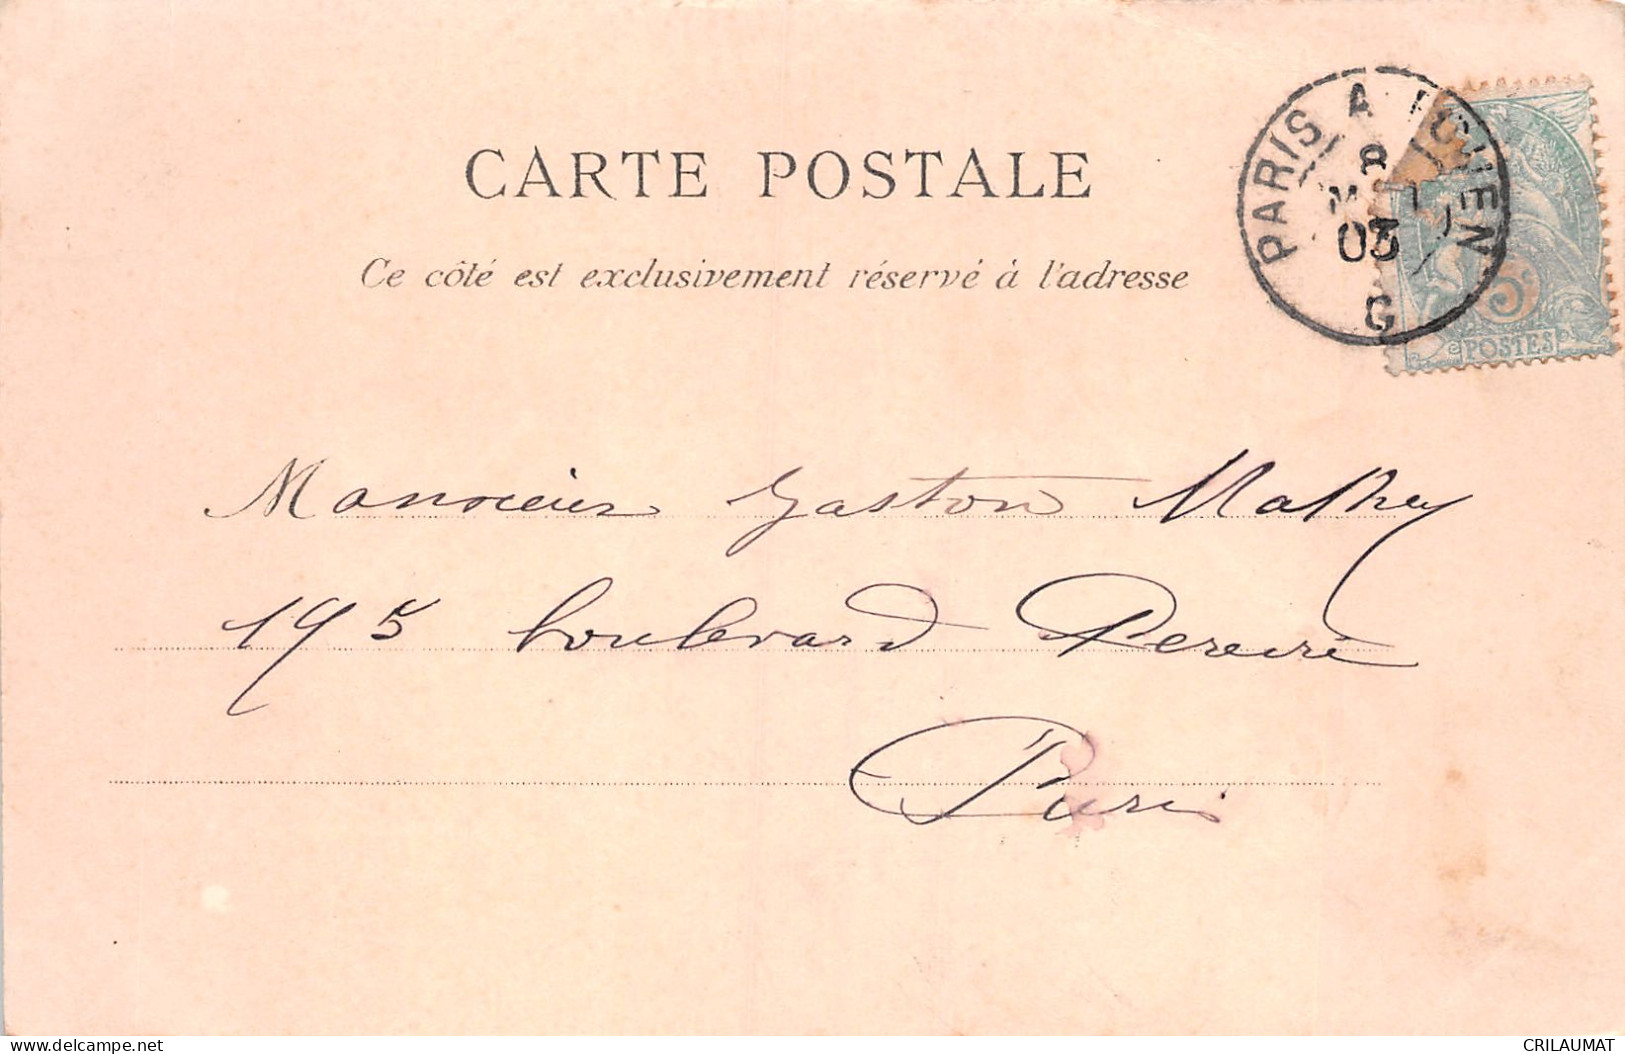 CARTE POSTALE
Ce côté est exclusivement réservé à l'adresse
PARIS A ROUEN
8
03
G
5
POSTES
Monsieur Gaston Mathey
195 boulevard Pereire
Paris
delcampe.net
CRILAUMAT